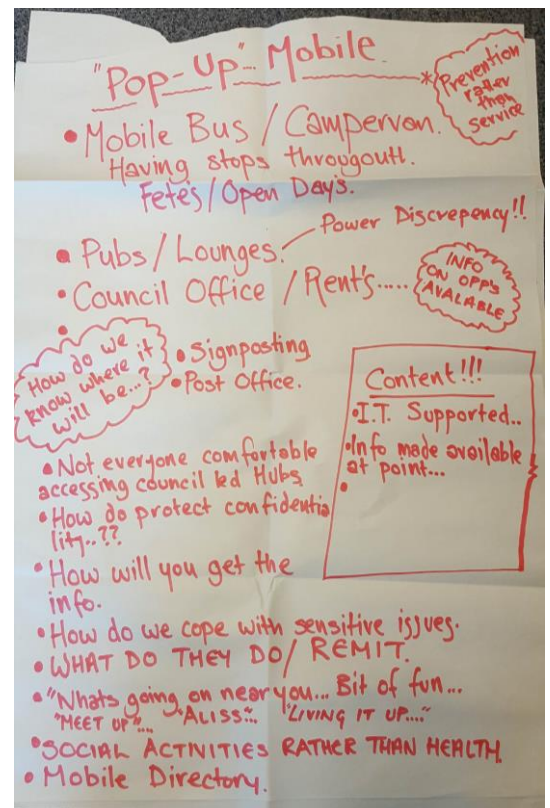 "Pop-Up" Mobile
*Prevention
rather
than
service
• Mobile Bus / Campervan.
Having stops througoutt.
Fete's/Open Day's.
Power Discrepency!!
• Pubs/Lounges.
• Council Office / Rent's.....
INFO
ON OPP'S
AVALABLE
•
How do we
know where it
will be...?
• Signposting
• Post Office.
Content!!!
• I.T. Supported..
• Info made available
at point...
•
• Not everyone comfortable
accessing council led Hubs
• How do protect confidentia
lity..??
• How will you get the
info.
• How do we cope with sensitive issues.
• WHAT DO THEY DO/ REMIT.
• "Whats going on near you... Bit of fun...
"MEET UP"... "ALISS"... "LIVING IT UP...."
• SOCIAL ACTIVITIES RATHER THAN HEALTH
• Mobile Directory.